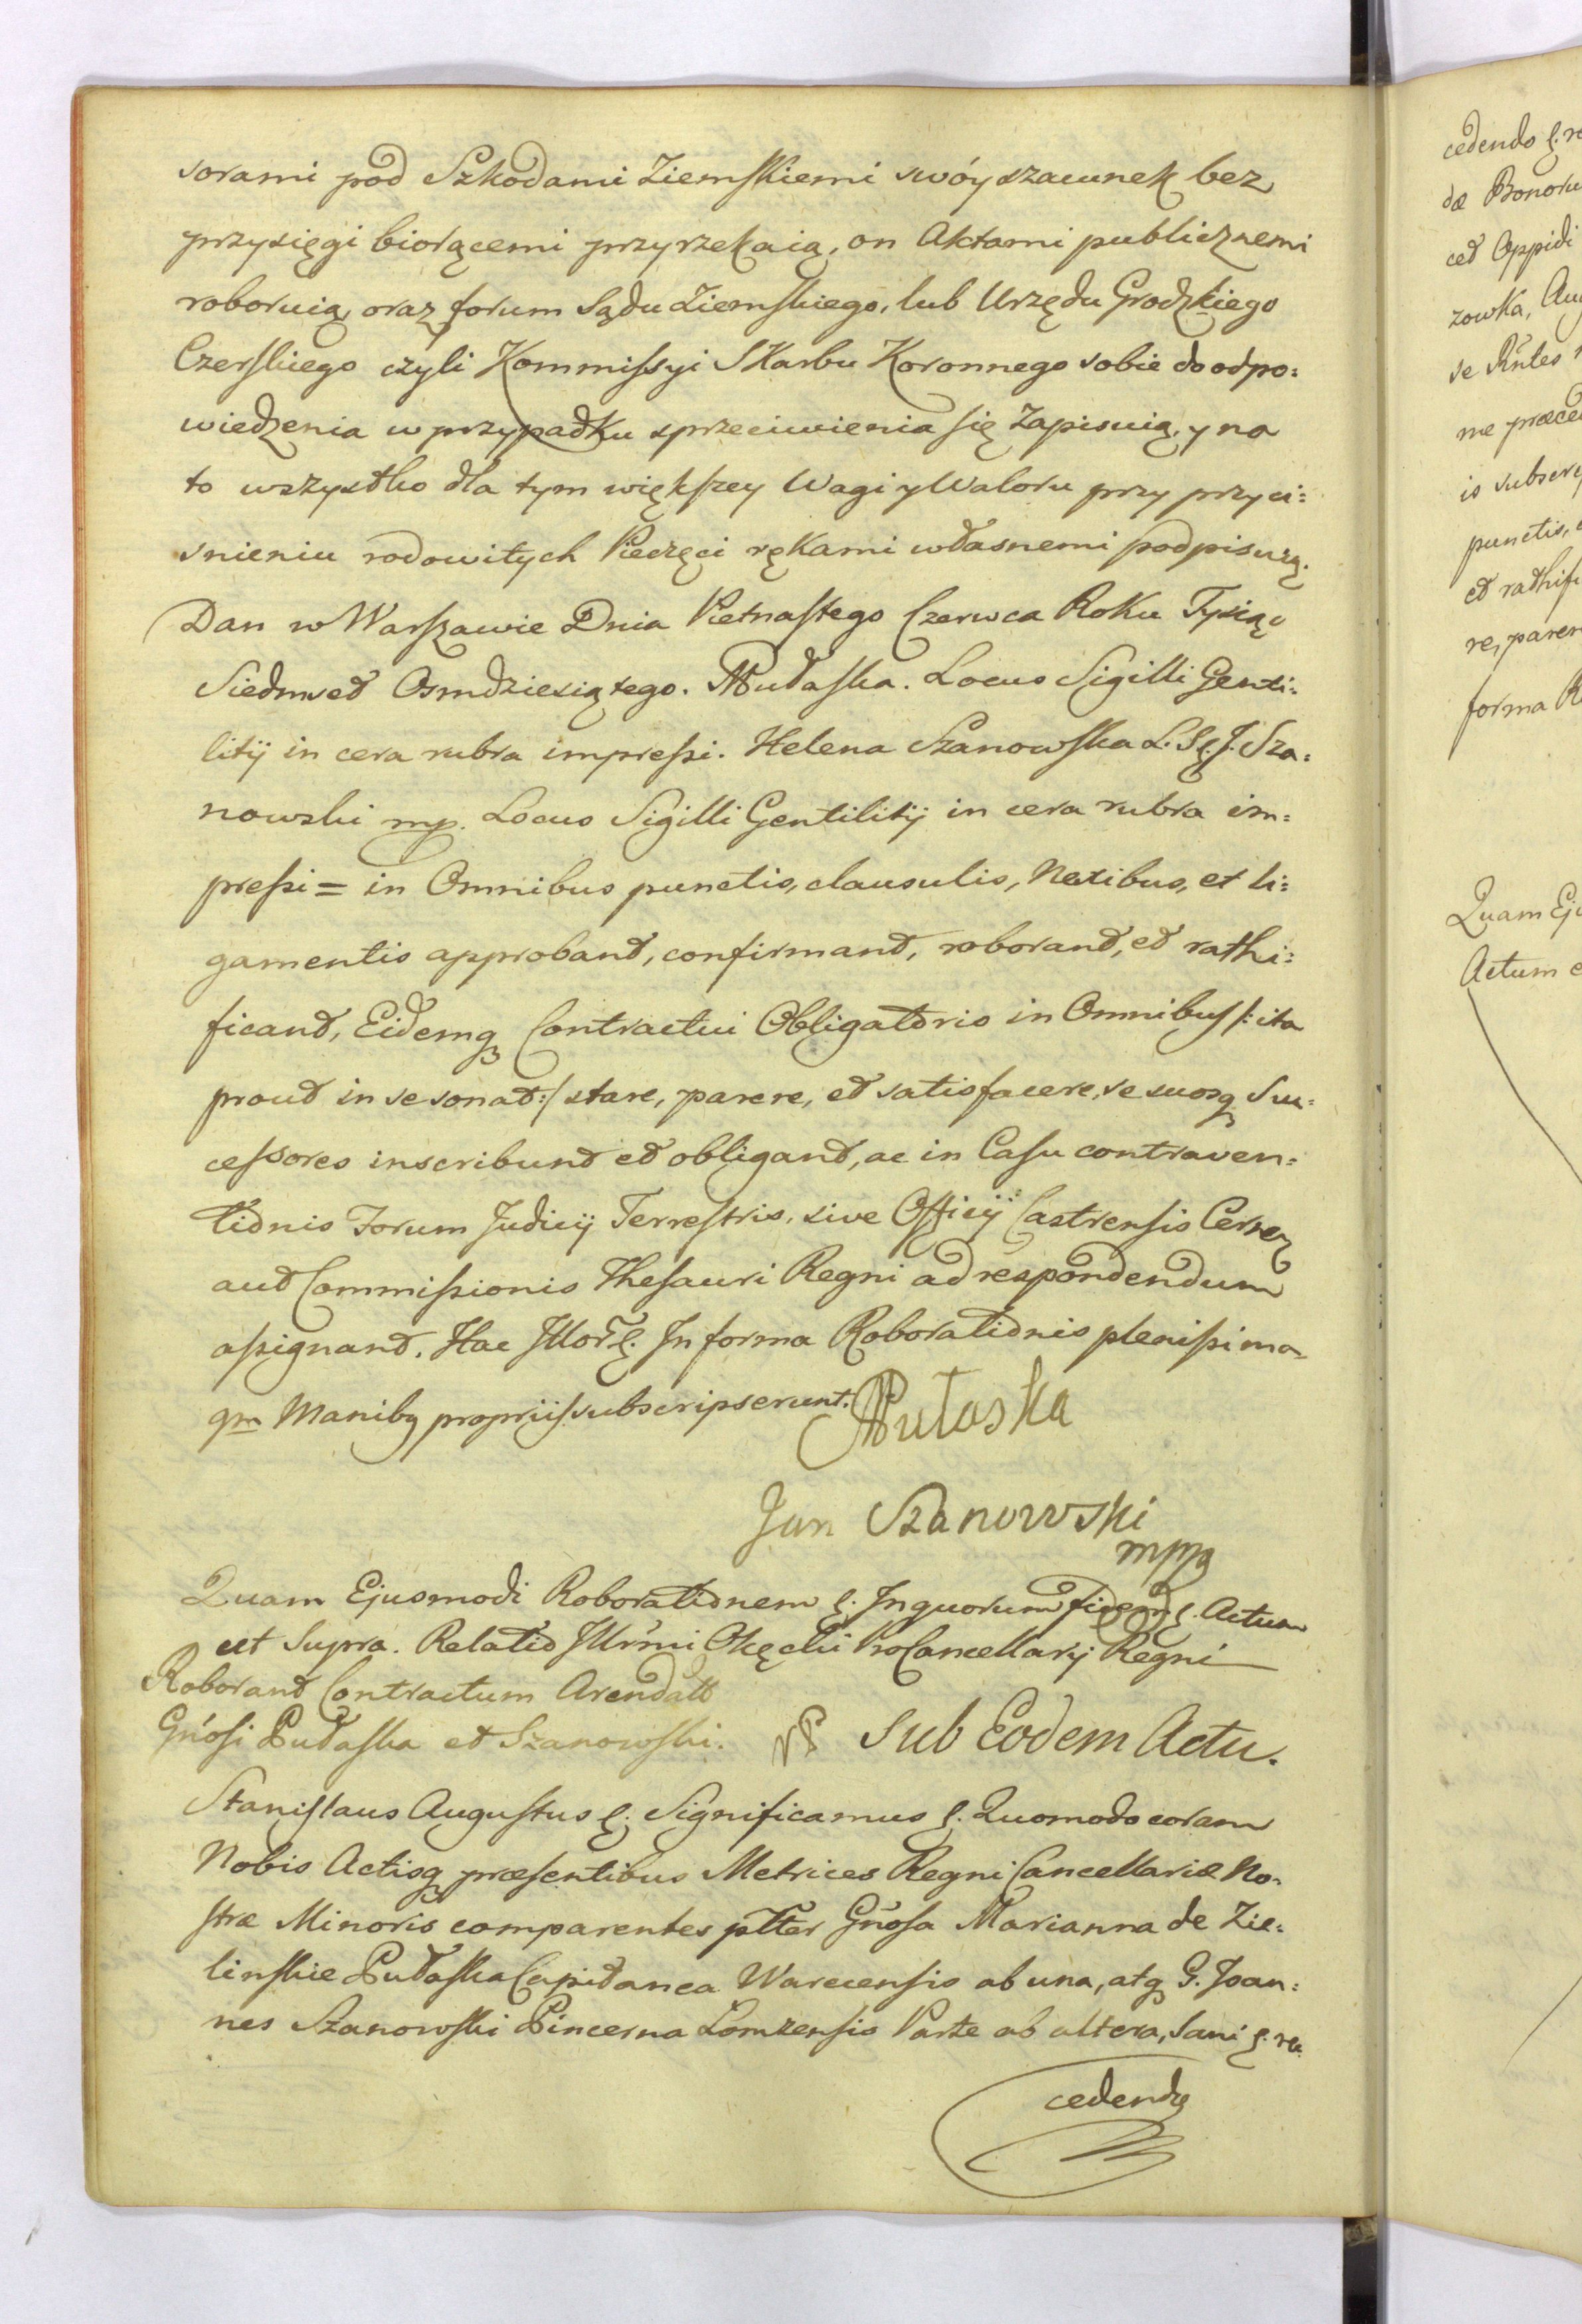 sorami pod Szkodami Ziemskiemi swóy szacunek bez
przysięgi biorącemi przyrzekaią, on Aktami publicznemi
roboruią, oraz forum Sądu Ziemskiego, lub Urzędu Grodzkiego
Czerskiego czyli Kommissyi Skarbu Koronnego sobie do odpo:
wiedzenia w przypadku sprzeciwienia się Zapisuią, y na
to wszystko dla tym większey Wagi y Waloru przy przyci:
snieniu rodowitych Pieczęci rękami własnemi podpisuią.
Dan w Warszawie Dnia Pietnastego Czerwca Roku Tysiąc
Siedmset Osmdziesiątego. MPułaska. Locus Sigilli Genti:
litij in cera rubra impressi. Helena Szanowska L. S. J. Sza:
nowski mp. Locus Sigilli Gentilitij in cera rubra im:
pressi = in Omnibus punctis, clausulis, Nexibus, et li:
gamentis approbant, confirmant, roborant, et rathi:
ficant, Eidemq Contractui Obligatorio in Omnibus /: ita
prout in se sonat :/ stare, parere, et satisfacere, se suosq Suc:
cessores inscribunt et obligant, ac in Casu contraven:
tionis Forum Judicij Terrestris, sive Officij Castrensis Cernen
aut Commissionis Thesauri Regni ad respondendum
assignant. Hac In forma Roborationis plenissima
qm Manibq propriis subscripserunt. MPułaska
Jan Szanowski
mpp
Quam Ejusmodi Roborationem &. In quorum fidem &. Actum
ut Supra. Relatio Illrmi Okęcki ProCancellarij Regni
Roborant Contractum Arendatt
Gnosi Pułaska et Szanowski.
Sub Eodem Actu.
Stanislaus Augustus &. Significamus &. Quomodo coram
Nobis Actisq præsentibus Metrices Regni Cancellariæ No:
stræ Minoris comparentes pltter Gnosa Marianna de Zie:
linskie Pułaska Capitanea Warecensis ab una, atq G. Joan:
nes Szanowski Pincerna Lomzensis Parte ab altera, Sani &. re
cedendo
cedendo &. re
dæ Bonoru
cet Oppidi
zowka, Au
se Rntes
me præced
is subscri
punctis,
et rathifi
re, parer
forma R
Quam Ej
Actum